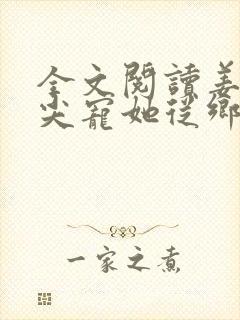 全文閱讀姜
尖寵她從鄉
一家之煮